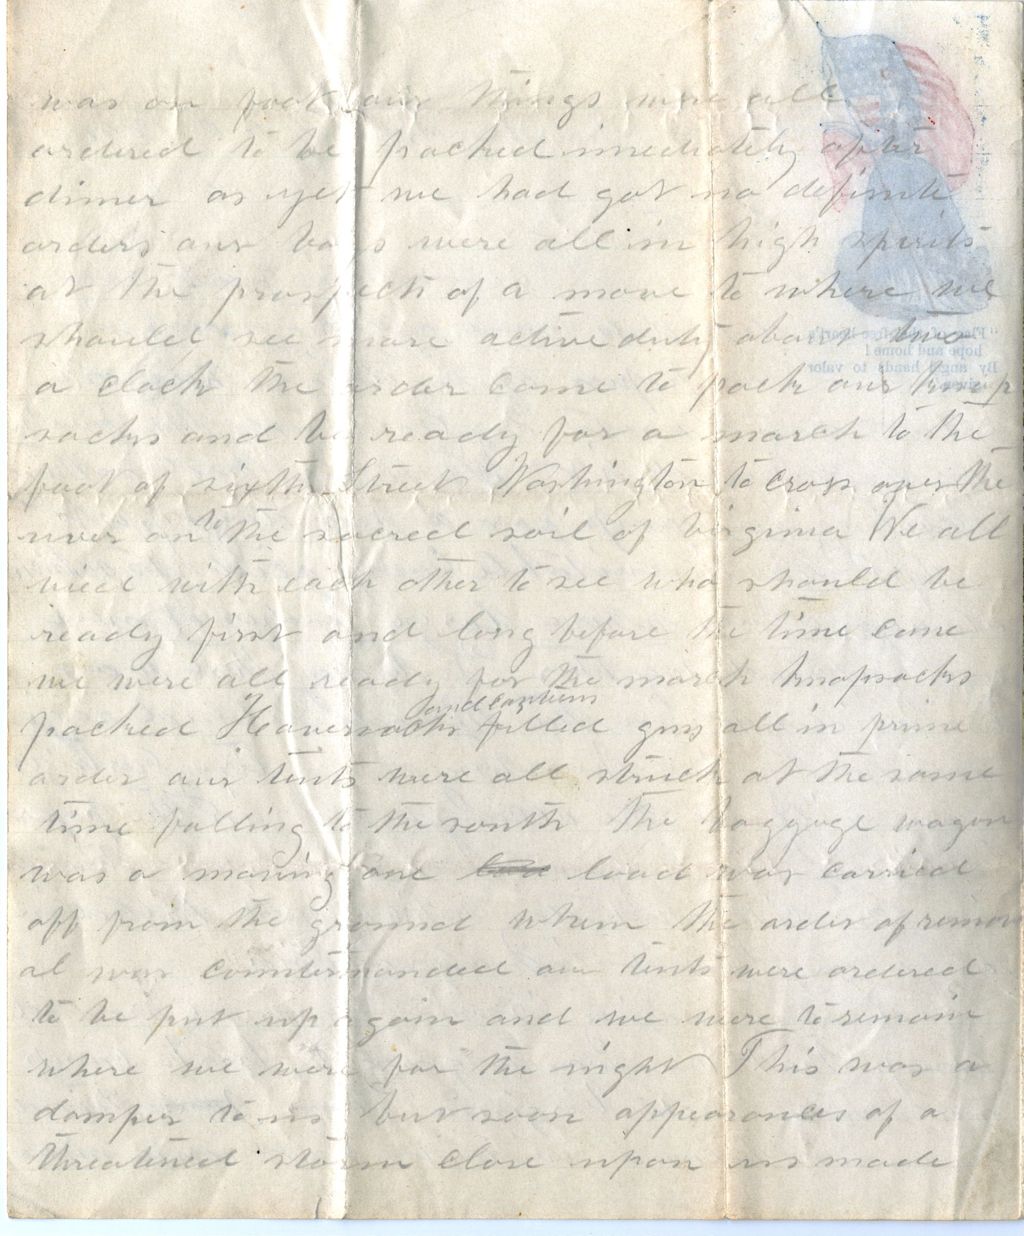 was on foot our things were all
ordered to be packed imediately after
dinner as yet we had got no definite
orders our boys were all in high spirits
at the prospects of a move to where we
should see more active duty about two
o clock the order came to pack our knap
sacks and be ready for a march to the
foot of sixth Street Washington to cross over the
river on to the sacred soil of Virginia We all
vied with each other to see who should be
ready first and long before the time came
we were all ready for the march knapsacks
and canteens
packed Haversacks filled guns all in prime
order our tents were all struck at the same
time falling to the south The baggage wagon
was a moving one load was carried
off from the ground when the order of remov
al was countermanded our tents were ordered
to be put up again and we were to remain
where we were for the night This was a
damper to us but soon appearances of a
threatened storm close upon us made
hope and home!
By angel hands to valor